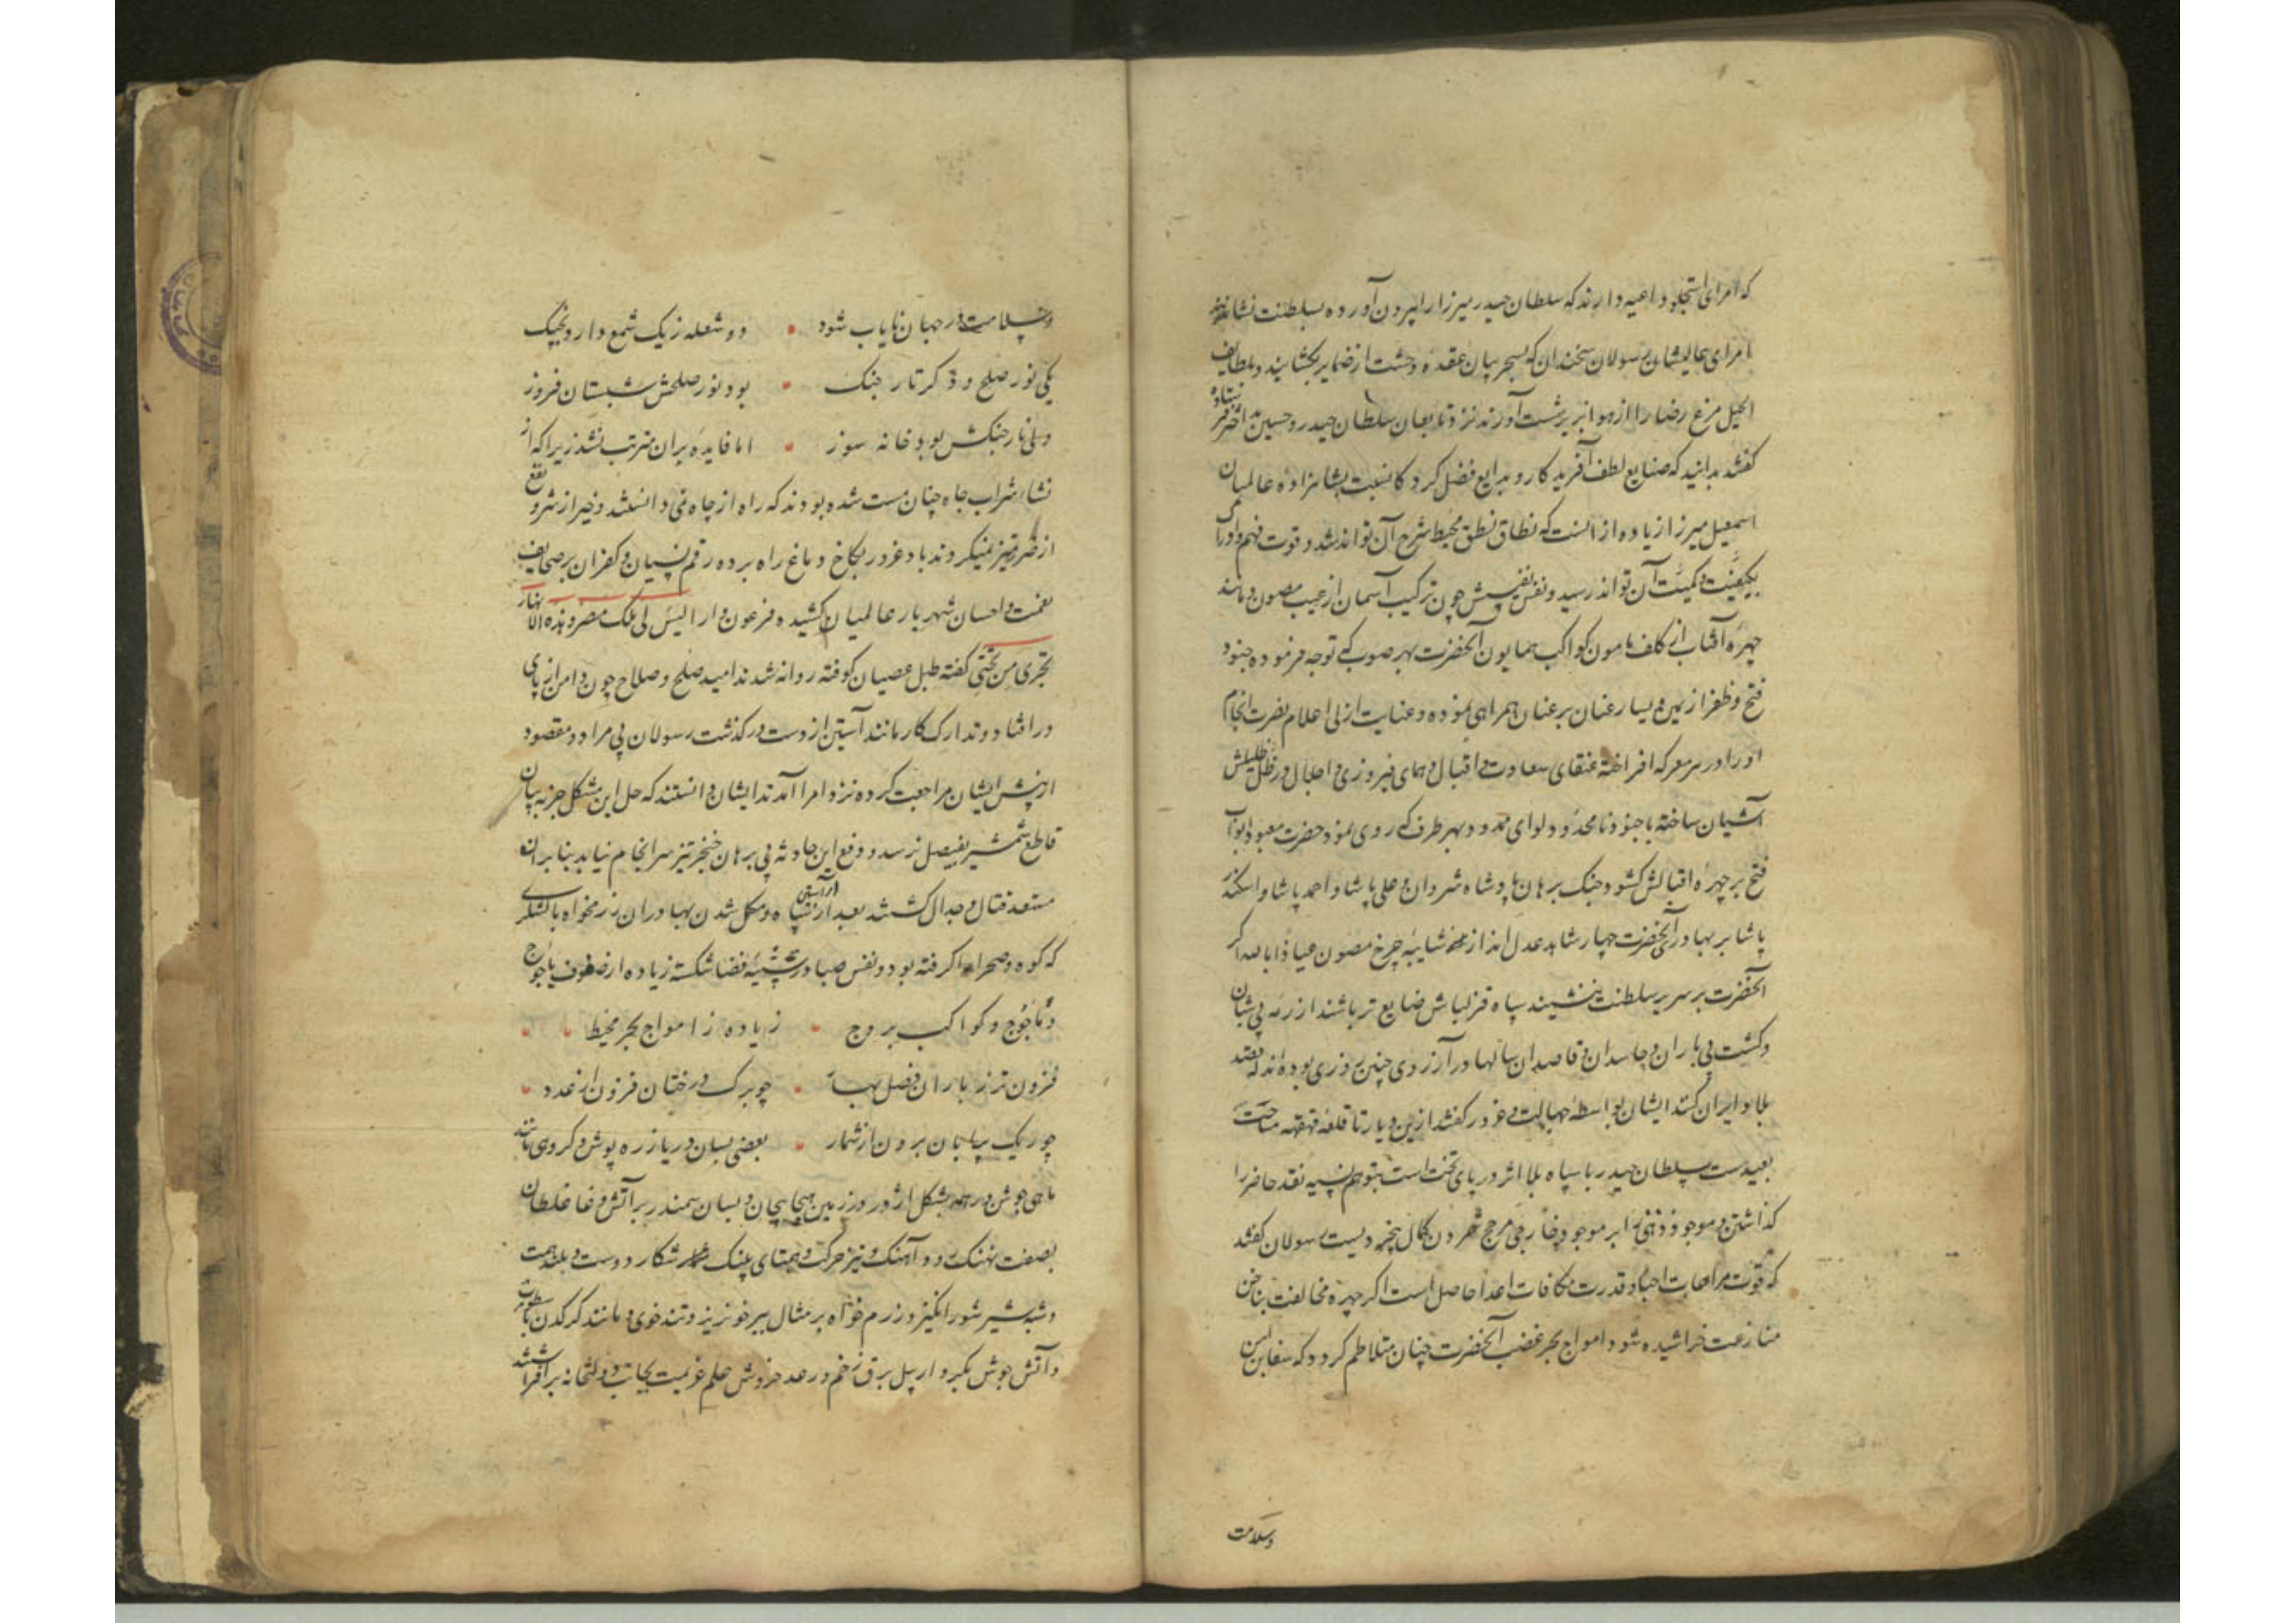 که امرای استجلو داعیه دارند که سلطان حیدر میرزا را بیرون آورده بسلطنت نشانند
امرای عالیشان رسولان سخندان که بسحر بیان عقده وحشت از ضمایر بگشایند و بلطایف
الحیل مرغ رضا را از هوا بزیر شست آورند نزد تابعان سلطان حیدر و حسین بیک فرستاده
گفتند بدانید که صنایع لطف آفریدکار و بدایع فضل کردکار نسبت بشاهزاده عالمیان
اسمعیل میرزا زیاده از آنست که نطاق نطق محیط شرح آن تواند شد و قوت فهم و ادراک
بکیفیت و کمیت آن تواند رسید و نفس نفیسش چون ترکیب آسمان از عیب مصون و مانند
چهره آفتاب از کلف مامون کواکب همایون آنحضرت بهر صوب که توجه فرموده جنود
فتح و ظفر از یمین و یسار عنان بر عنان همراهی نموده و عنایت ازلی اعلام نصرت انجام
او را در هر معرکه افراخته عنقای سعادت و اقبال و همای فیروزی و اجلال در ظل ظلیلش
آشیان ساخته با جنود نامحدود و لوای محدود بهر طرف که روی نمود حضرت معبود ابواب
فتح بر چهره اقبالش کشود جنک برهان پادشاه شروان و علی پاشا و احمد پاشا و اسکندر
پاشا بر بهادری آنحضرت چهار شاهد عدل اند از شایبه چرخ مصون عیاذا بالله اگر
آنحضرت بر سریر سلطنت ننشیند سپاه قزلباش ضایع تر باشند از رمه بی شبان
و کشت بی باران و حاسدان و قاصدان سالها در آرزوی چنین روزی بوده اند که قصد
بلاد ایران کنند ایشان بواسطه جهالت و غرور گفتند ازین دیار تا قلعه قهقهه مساحت
بعیدست و سلطان حیدر با سپاه بلا اثر در پای تخت است بتوهم نسیه نقد حاضر را
گذاشتن و موجود ذهنی را بر موجود خارجی مرجح شمردن کمال بیخردیست رسولان گفتند
که قوت مراعات احبا و قدرت مکافات اعدا حاصل است اگر چهره مخالفت بناخن
منازعت خراشیده شود امواج بحر غضب آنحضرت چنان متلاطم گردد که سفاین امن
وسلامت
و سلامت در جهان نایاب شود دو شعله ز یک شمع دارد بجیک
یکی نور صلح و دگر نار جنک بود نور صلحش شبستان فروز
ولی نار جنکش بود خانه سوز اما فایده بر آن مترتب نشد زیرا که از
نشاء شراب جاه چنان مست شده بودند که راه از چاه نمی دانستند و خیر از شر و نفع
از ضرر تمیز نمیکردند باد غرور بکاخ دماغ راه برده رقم نسیان و کفران بر صحایف
نعمت و احسان شهریار عالمیان کشیده فرعون وار الیس لی ملک مصر و هذه الانهار
تجری من تحتی گفته طبل عصیان کوفته روانه شدند امید صلح و صلاح چون دامن از پای
در افتاد و تدارک کار مانند آستین از دست در گذشت رسولان بی مراد و مقصود
از پیش ایشان مراجعت کرده نزد امرا آمدند ایشان دانستند که حل این مشکل جز به بیان
قاطع شمشیر بفیصل نرسد و دفع این حادثه بی برهان خنجر تیز سرانجام نیابد بنابر آن
مستعد قتال و جدال گشتند بعد از آراستن سپاه و مکمل شدن بهادران رزمخواه با لشکری
که کوه و صحرا را گرفته بود و نفس صبا در شیشه فضا شکسته زیاده از صفوف یاجوج
و ماجوج و کواکب بروج زیاده ز امواج بحر محیط
فزون تر ز باران فصل بهار چو برک درختان فزون از عدد
چو ریک بیابان برون از شمار بعضی بسان دریا زره پوش و گروهی مانند
ماهی جوشن ور همه بشکل اژدر در زمین هیجا پیچان و بسان سمندر بر آتش وغا غلطان
بصفت نهنک رود آهنک و تیز حرکت و همتای پلنک شکار دوست و بلند همت
و شبه شیر شور انگیز و رزم خواه بر مثال ببر خونریز و تند خوی و مانند کرکدن با سطوت
و آتش جوش بکردار پیل برق زخم و رعد خروش علم عزیمت بجانب دولتخانه برافراشتند